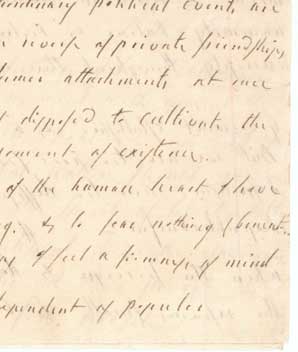 ordinary political events are
reverse of private friendships,
former attachments at once
disposed to cultivate the
oment of existence.
of the human heart I have
g. & to fear nothing (beneath
I feel a firmness of mind
ependent of popular